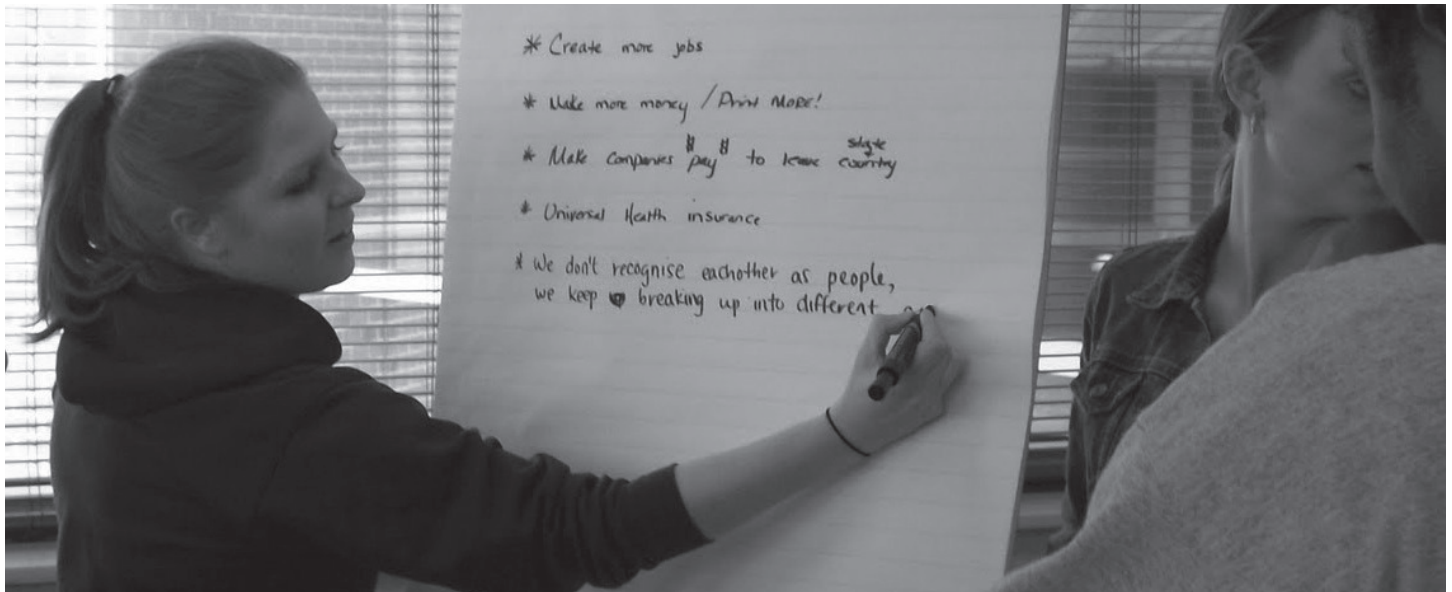 * Create more jobs
* Make more money / Print MORE!
* Make companies $pay$ to leave state country
* Universal Health insurance
* We don't recognise eachother as people,
we keep breaking up into different